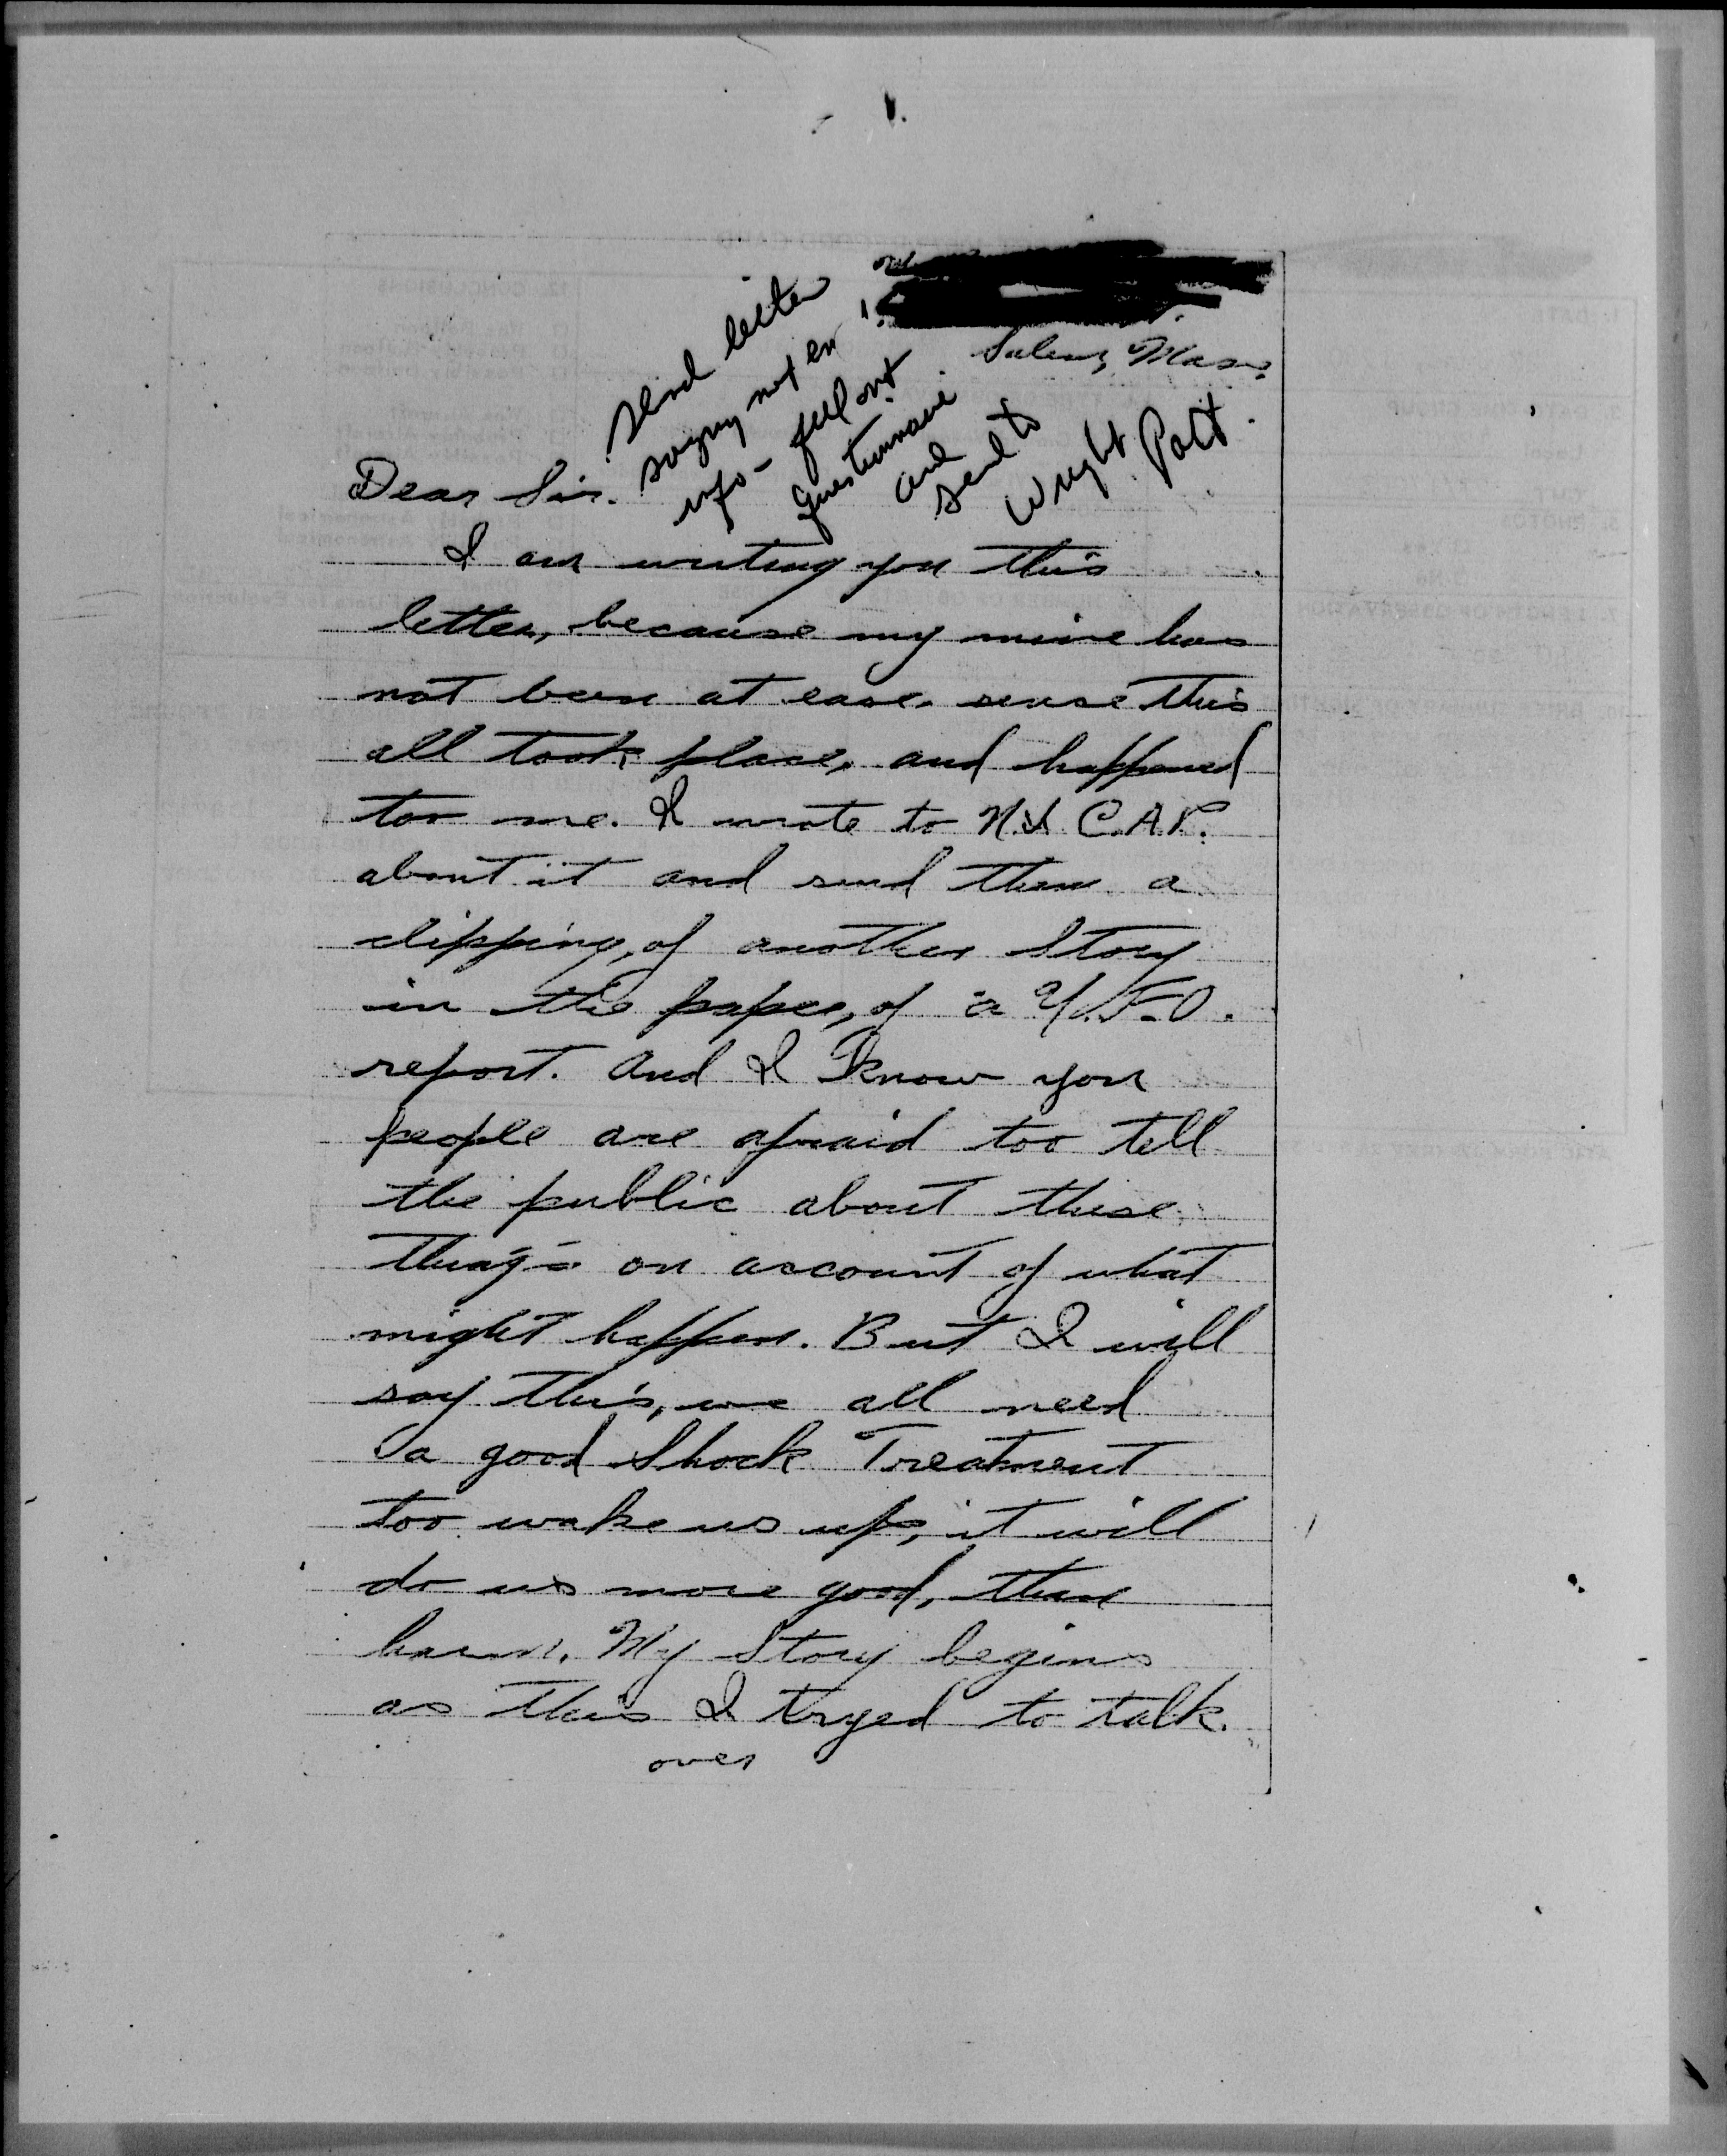 Salem, Mass.
send letter
saying not en
info - fill out
questionnaire
and
send to
Wright Patt.
Dear Sir.
I am writing you this
letter, because my mine has
not been at ease, sense this
all took place, and happened
too me. I wrote to N.I.C.A.P.
about it and send them a
clipping, of another Story
in the paper, of a U.F.O.
report. And I know you
people are afraid too tell
the public about these
thing's on account of what
might happen. But I will
say this, we all need
a good Shock Treatment
too wake us up, it will
do us more good, than
harm. My Story begins
as this I tryed to talk.
over